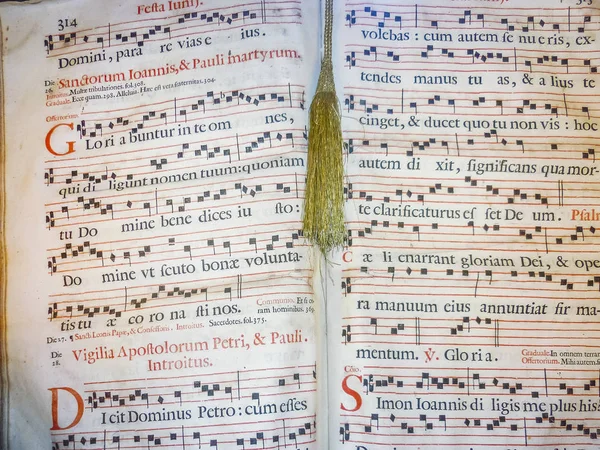 314
Festa Iunij.
Domini, para re vias e ius.
Die 26.
Sanctorum Ioannis, & Pauli martyrum.
Introitus. Multæ tribulationes. fol. 308.
Graduale. Ecce quam. 298. Alleluia. Hæc est vera fraternitas. 304.
Offertorium.
G lo ri a buntur in te om nes,
qui di ligunt nomen tuum: quoniam
tu Do mine bene dices iu sto:
Do mine vt scuto bonæ volunta-
tis tu æ co ro na sti nos.
Communio. Et si co-
ram hominibus. 369.
Die 27. ¶ Sancti Leonis Papæ, & Confessoris. Introitus. Sacerdotes. fol. 375.
Die 28.
Vigilia Apostolorum Petri, & Pauli.
Introitus.
D I cit Dominus Petro: cum esses
volebas: cum autem se nu eris, ex-
tendes manus tu as, & a lius te
cinget, & ducet quo tu non vis: hoc
autem di xit, significans qua mor-
te clarificaturus es set De um. Psal
C æ li enarrant gloriam Dei, & ope
ra manuum eius annuntiat fir ma-
mentum. ℣. Glo ri a.
Graduale. In omnem terram
Offertorium. Mihi autem
S Imon Ioannis di ligis me plus his?